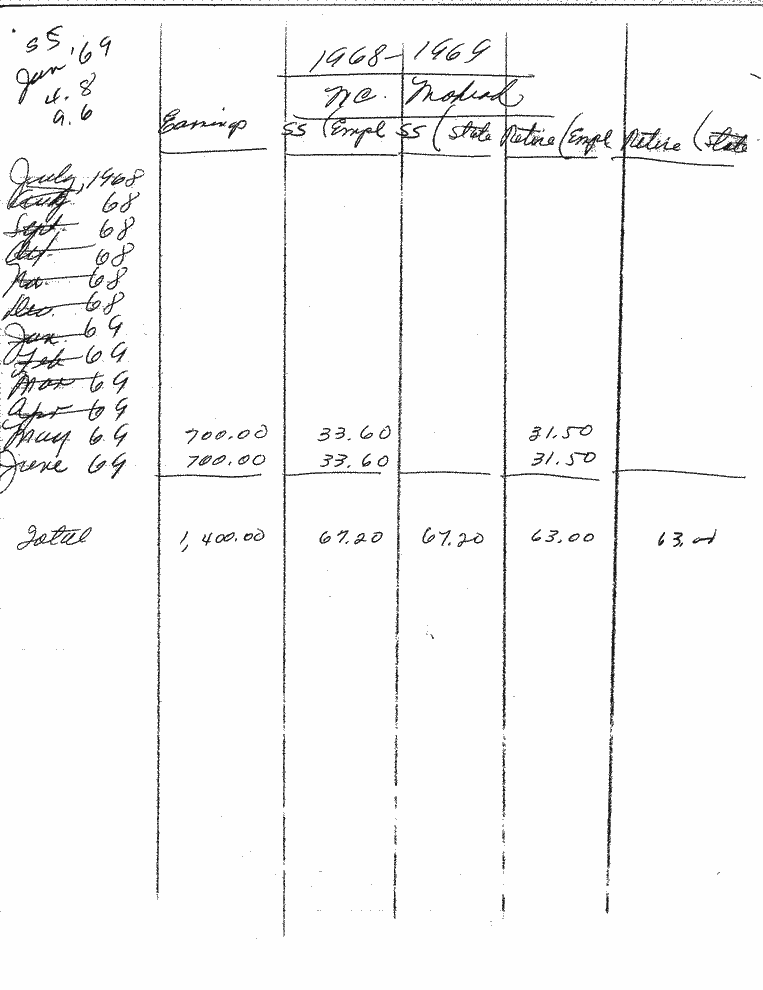 SS, 69
Jan
4.8
9.6
1968-1969
NC.
Earnings SS (Empl SS (State Retire (Empl Retire (State
July, 1968
Aug 68
Sept. 68
Oct. 68
No. 68
Dec. 68
Jan. 69
Feb 69
Mar 69
Apr 69
May 69 700.00 33.60 31.50
June 69 700.00 33.60 31.50
Total 1,400.00 67.20 67.20 63.00 63.00